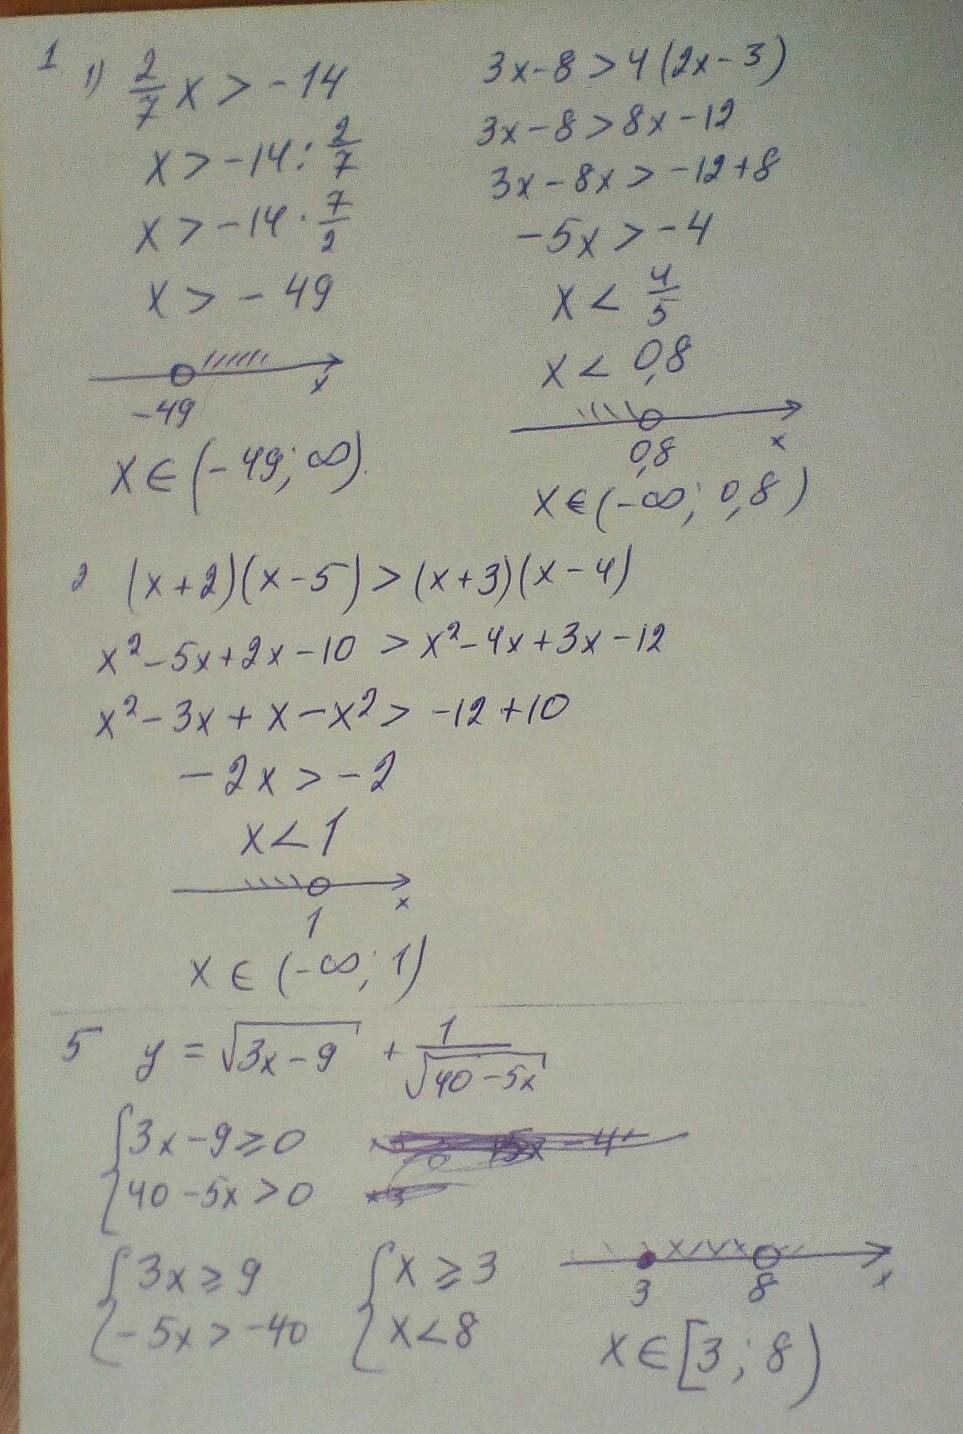 1
1) 2/7 x > -14
x > -14 : 2/7
x > -14 · 7/2
x > - 49
-49 x
x ∈ (- 49; ∞).
3x-8 > 4(2x-3)
3x-8 > 8x-12
3x-8x > -12+8
-5x > -4
x < 4/5
x < 0,8
0,8 x
x ∈ (-∞; 0,8)
2 (x+2)(x-5) > (x+3)(x-4)
x²-5x+2x-10 > x²-4x+3x-12
x²-3x+x-x² > -12+10
-2x > -2
x < 1
1 x
x ∈ (-∞; 1)
5 y = √(3x-9) + 1/√(40-5x)
{3x-9 ≥ 0
40-5x > 0
{3x ≥ 9
-5x > -40
{x ≥ 3
x < 8
3 8 x
x ∈ [3; 8)